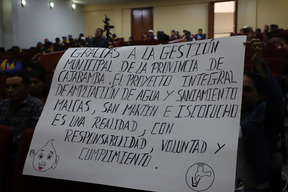 GRACIAS A LA GESTIÓN
MUNICIPAL DE LA PROVINCIA DE
CAJABAMBA. EL PROYECTO INTEGRAL
DE AMPLIACIÓN DE AGUA Y SANIAMIENTO
MALCAS, SAN MARTIN E ISCOCUCHO
ES UNA REALIDAD, CON
RESPONSABILIDAD, VOLUNTAD Y
CUMPLIMIENTO.